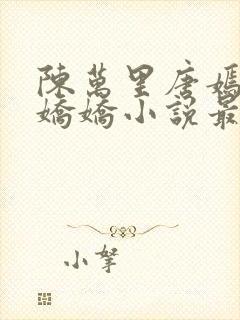 陳萬里唐嫣
嬌嬌小說最
小拏